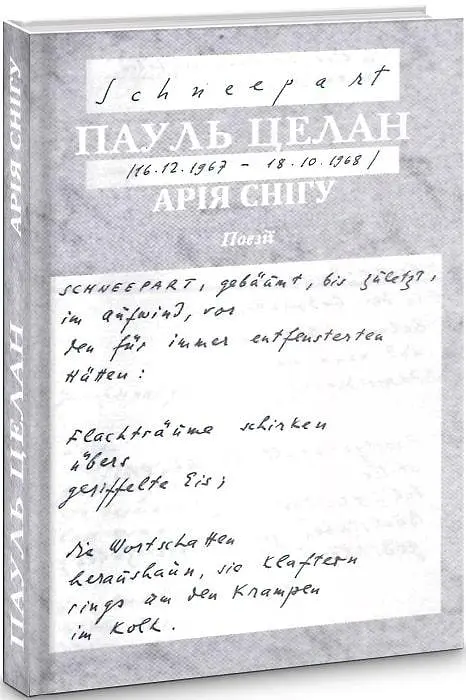 Schneepart
ПАУЛЬ ЦЕЛАН
/16.12.1967 - 18.10.1968/
АРІЯ СНІГУ
Поезії
SCHNEEPART, gebäumt, bis zuletzt,
im Aufwind, vor
den für immer entfensterten
Hütten:
Flachträume schirken
übers
geriffelte Eis;
die Wortschatten
heraushaun, sie klaftern
rings um den Krampen
im Kolk.
ПАУЛЬ ЦЕЛАН
АРІЯ СНІГУ